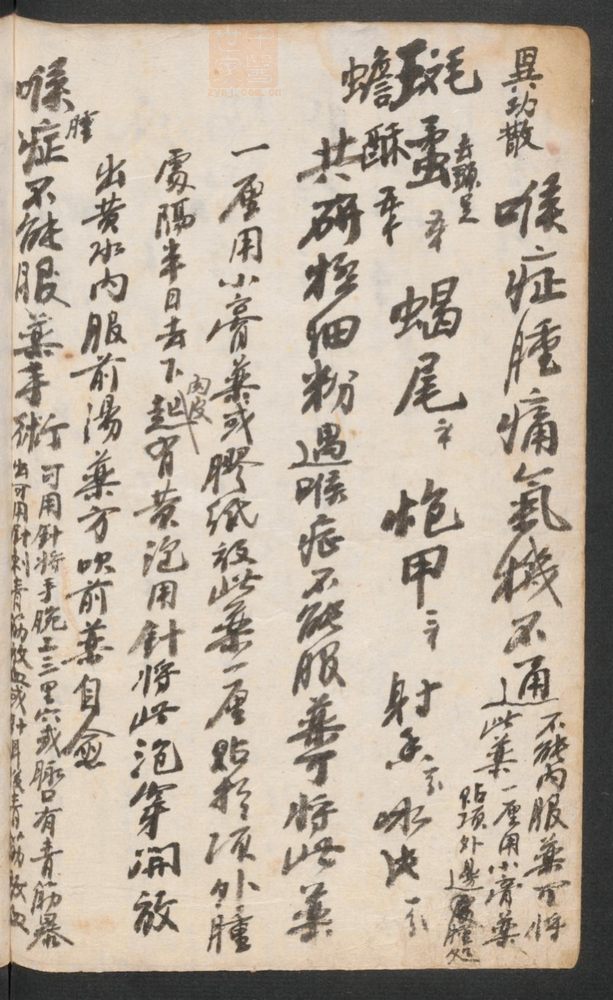 異功散
喉症腫痛氣機不通
不能內服藥可將
此藥一厘用小膏藥
貼項外邊腫处
斑毛
蝥
去頭足
蝎尾
炮甲
射香
冰片
蟾酥
共研極细粉遇喉症不能服藥可將此藥
一厘用小膏藥或膠纸放此藥一厘貼於項外腫
處隔半日去下起有黄泡用針將此泡穿開放
肉皮
出黄水內服前湯藥方吹前藥自愈
喉症不能服藥手術
腫
可用針將手腕上三里穴或脉口有青筋暴
出可用針刺青筋放血或針耳後青筋放血